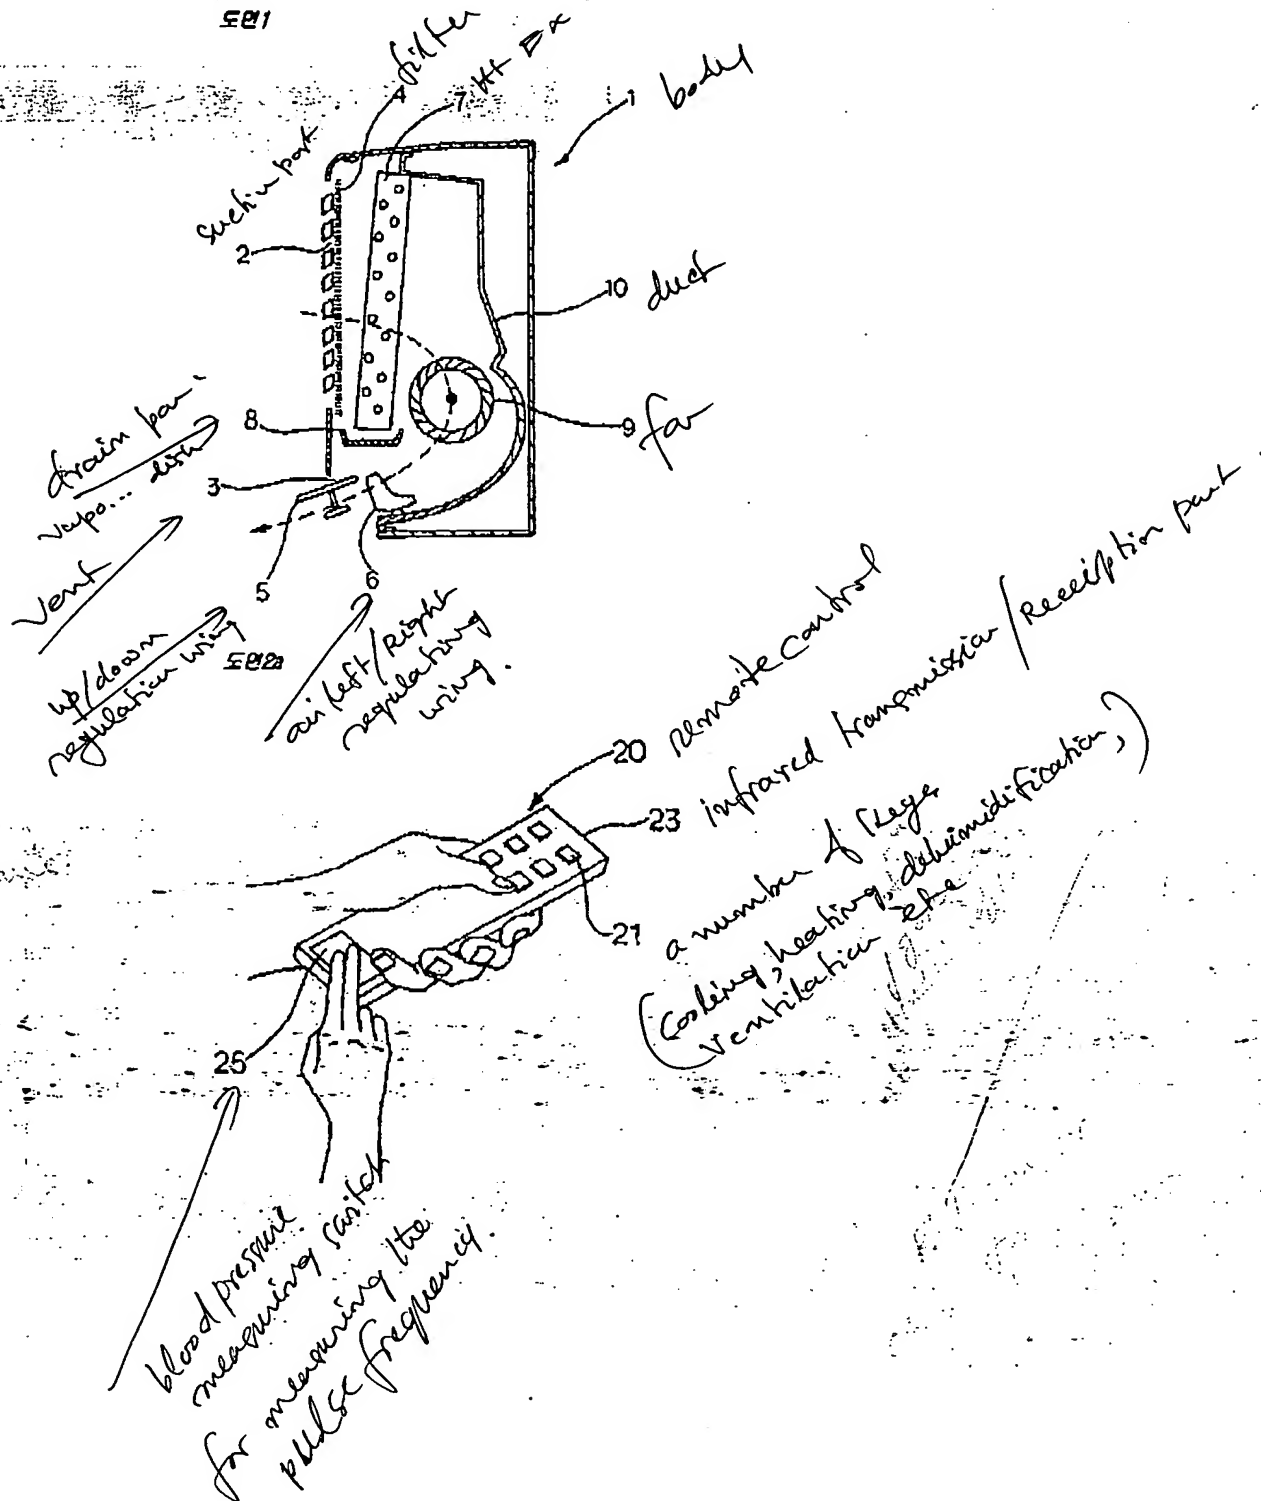 도면1
filter
4
7 Ht Ex
1 body
suction part
2
10 duct
8
9 fan
drain pan
vapo... dish
3
vent
5
6
up/down
regulation wing
air left/Right
regulating
wing.
도면2a
20 remote control
23 infrared transmission/Receiption part
21
a number of keys
(cooling, heating, dehumidification,)
ventilation etc
25
blood pressure
measuring switch
for measuring the
pulse frequency.